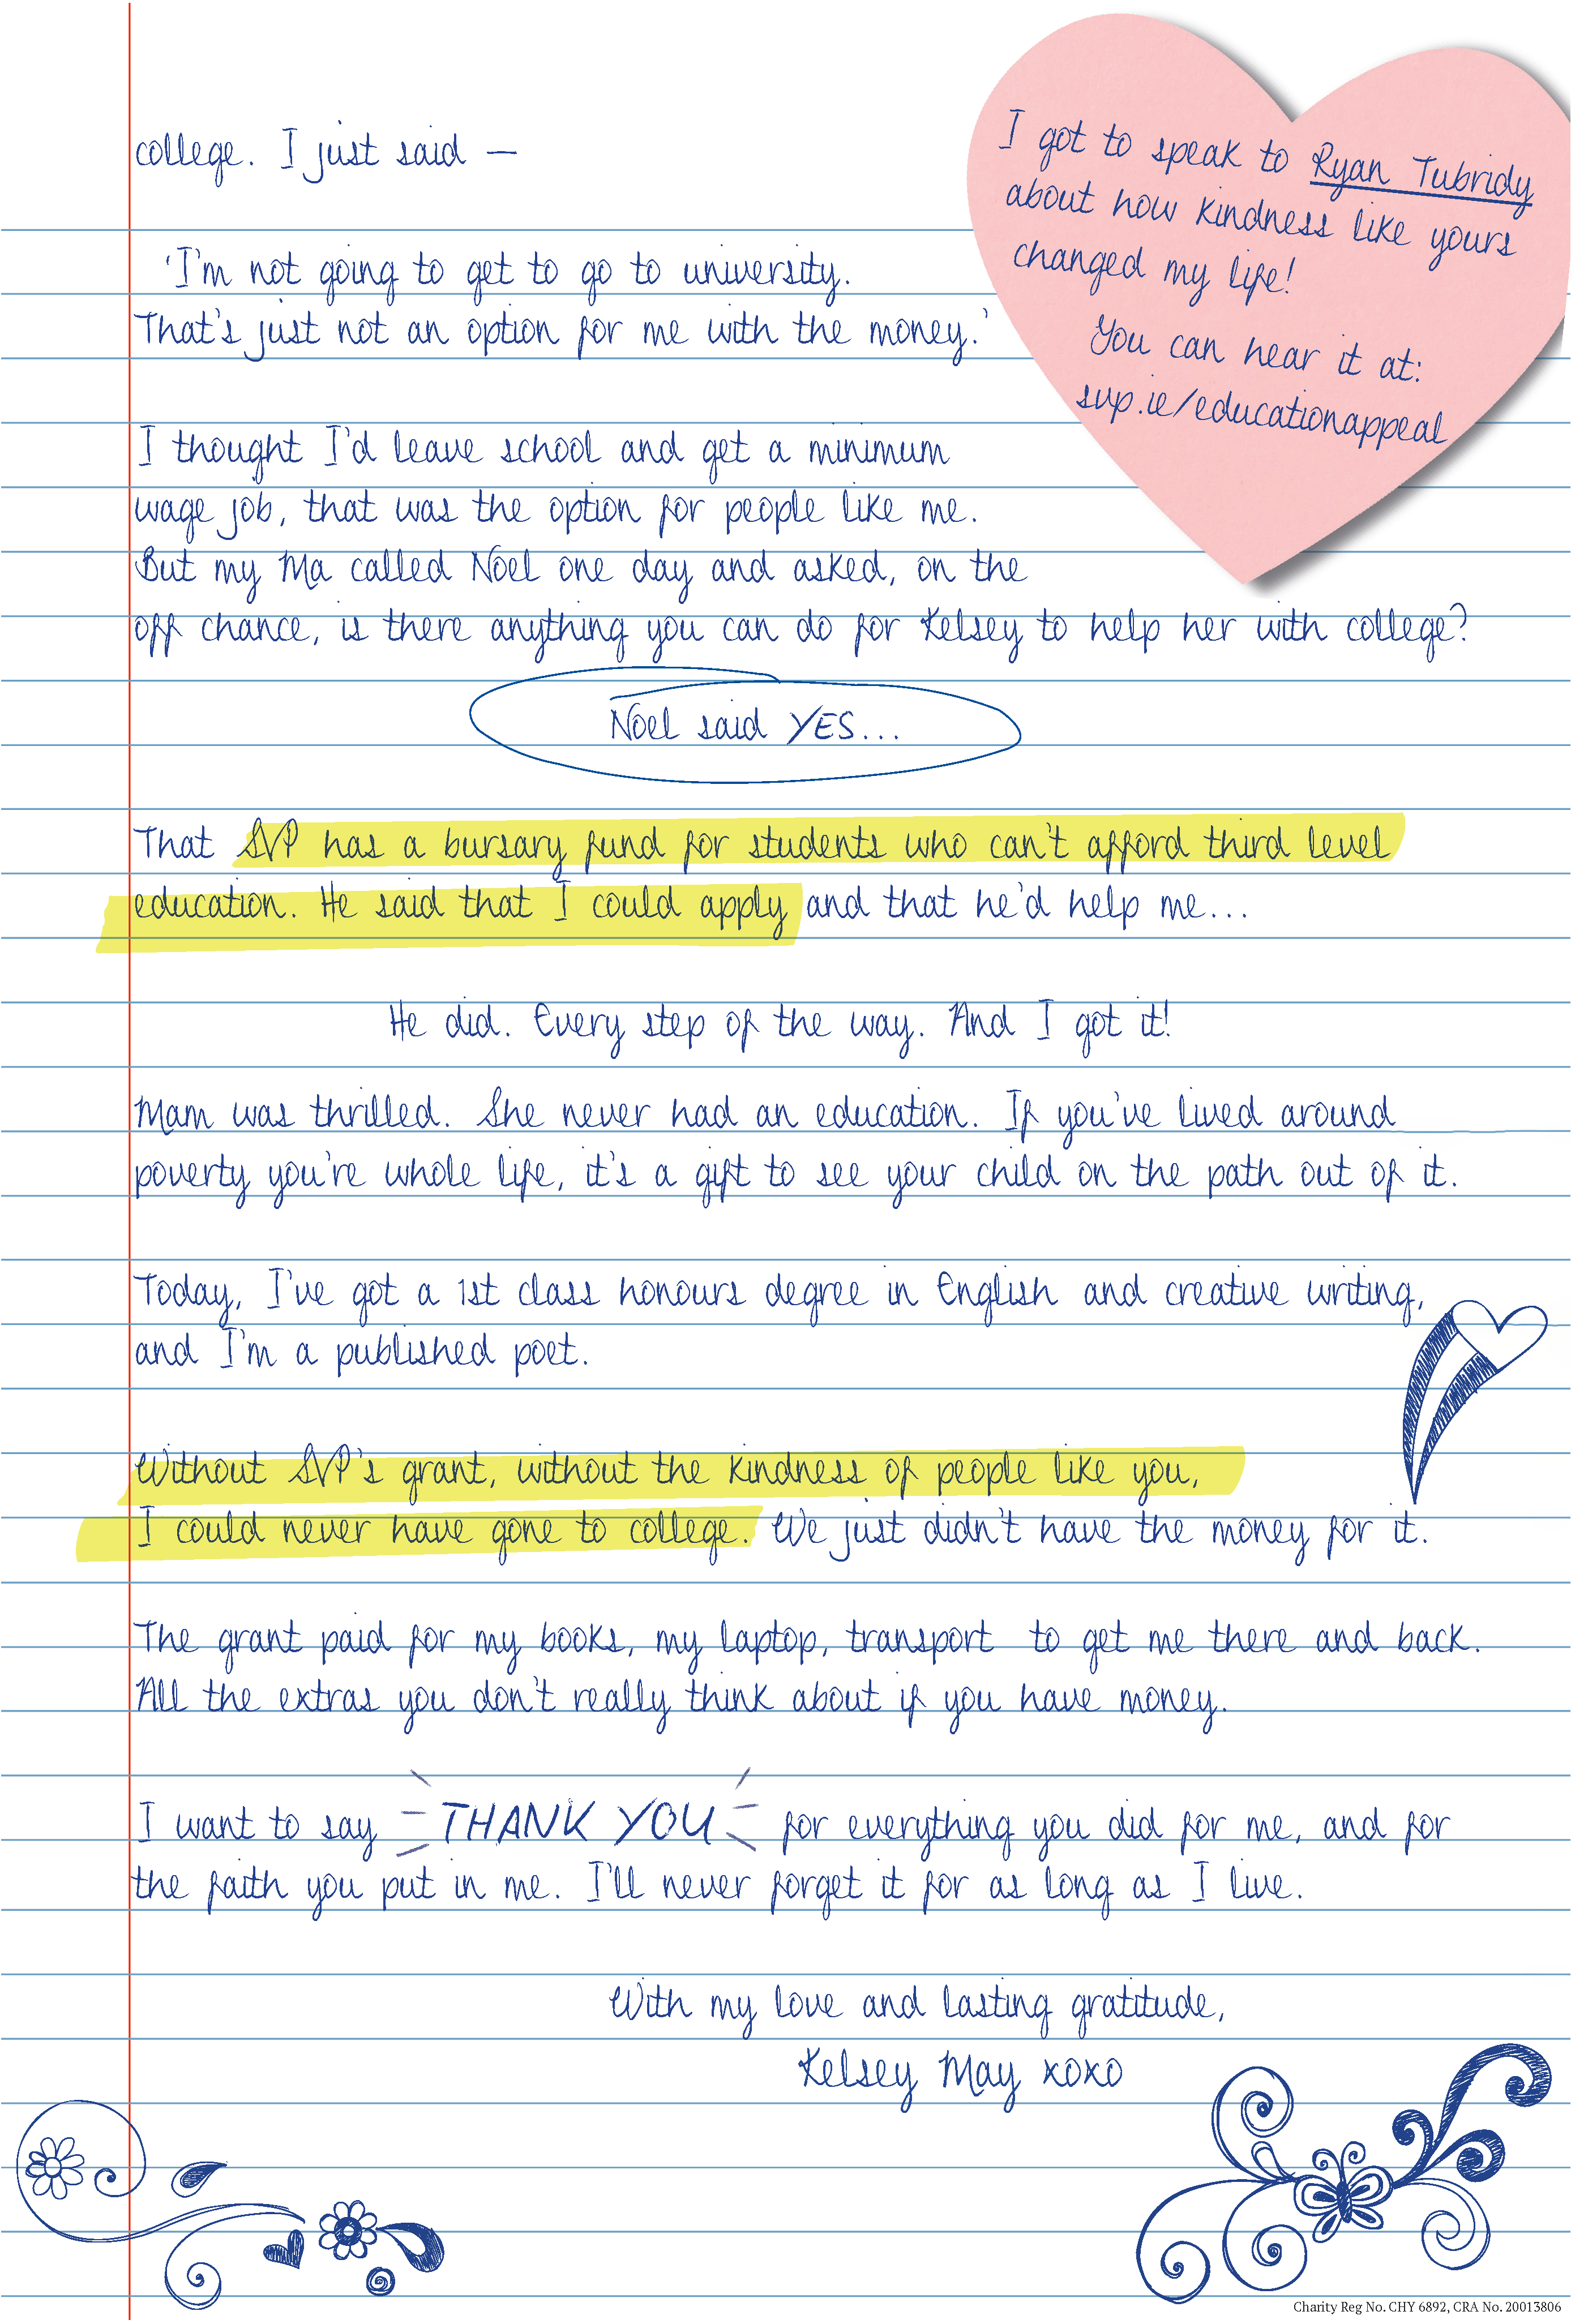 college. I just said –
'I'm not going to get to go to university.
That's just not an option for me with the money.'
I thought I'd leave school and get a minimum
wage job, that was the option for people like me.
But my Ma called Noel one day and asked, on the
off chance, is there anything you can do for Kelsey to help her with college?
Noel said YES...
That SVP has a bursary fund for students who can't afford third level
education. He said that I could apply and that he'd help me...
He did. Every step of the way. And I got it!
Mam was thrilled. She never had an education. If you've lived around
poverty you're whole life, it's a gift to see your child on the path out of it.
Today, I've got a 1st class honours degree in English and creative writing,
and I'm a published poet.
Without SVP's grant, without the kindness of people like you,
I could never have gone to college. We just didn't have the money for it.
The grant paid for my books, my laptop, transport to get me there and back.
All the extras you don't really think about if you have money.
I want to say THANK YOU for everything you did for me, and for
the faith you put in me. I'll never forget it for as long as I live.
With my love and lasting gratitude,
Kelsey May xoxo
I got to speak to Ryan Tubridy
about how kindness like yours
changed my life!
You can hear it at:
svp.ie/educationappeal
Charity Reg No. CHY 6892, CRA No. 20013806